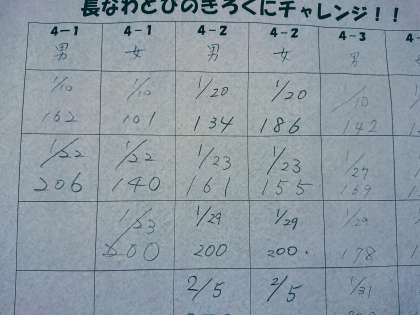 長なわとびのきろくにチャレンジ！！
4-1 4-1 4-2 4-2 4-3
男 女 男 女 男
1/10 1/10 1/20 1/20 1/10
162 101 134 186 142
1/22 1/22 1/23 1/23 1/27
206 140 161 155 169
1/23 1/29 1/29 1/29
200 200 200. 178
2/5 2/5 1/31